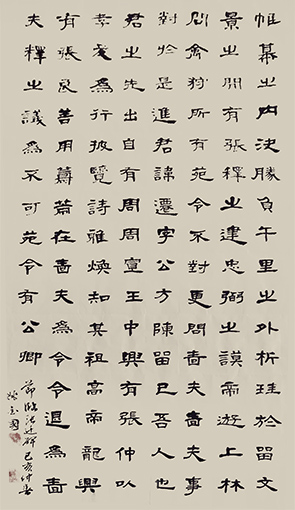 帷幕之內決勝負千里之外析珪於留文
景之間有張釋之建忠弼之謨帝遊上林
問禽狩所有苑令不對更問嗇夫嗇夫事
對於是進君諱遷字公方陳留己吾人也
君之先出自有周周宣王中興有張仲以
孝友為行披覽詩雅煥知其祖高帝龍興
有張良善用籌策在嗇夫為令令退為嗇
夫釋之議為不可苑令有公卿
節臨張遷碑己亥仲春